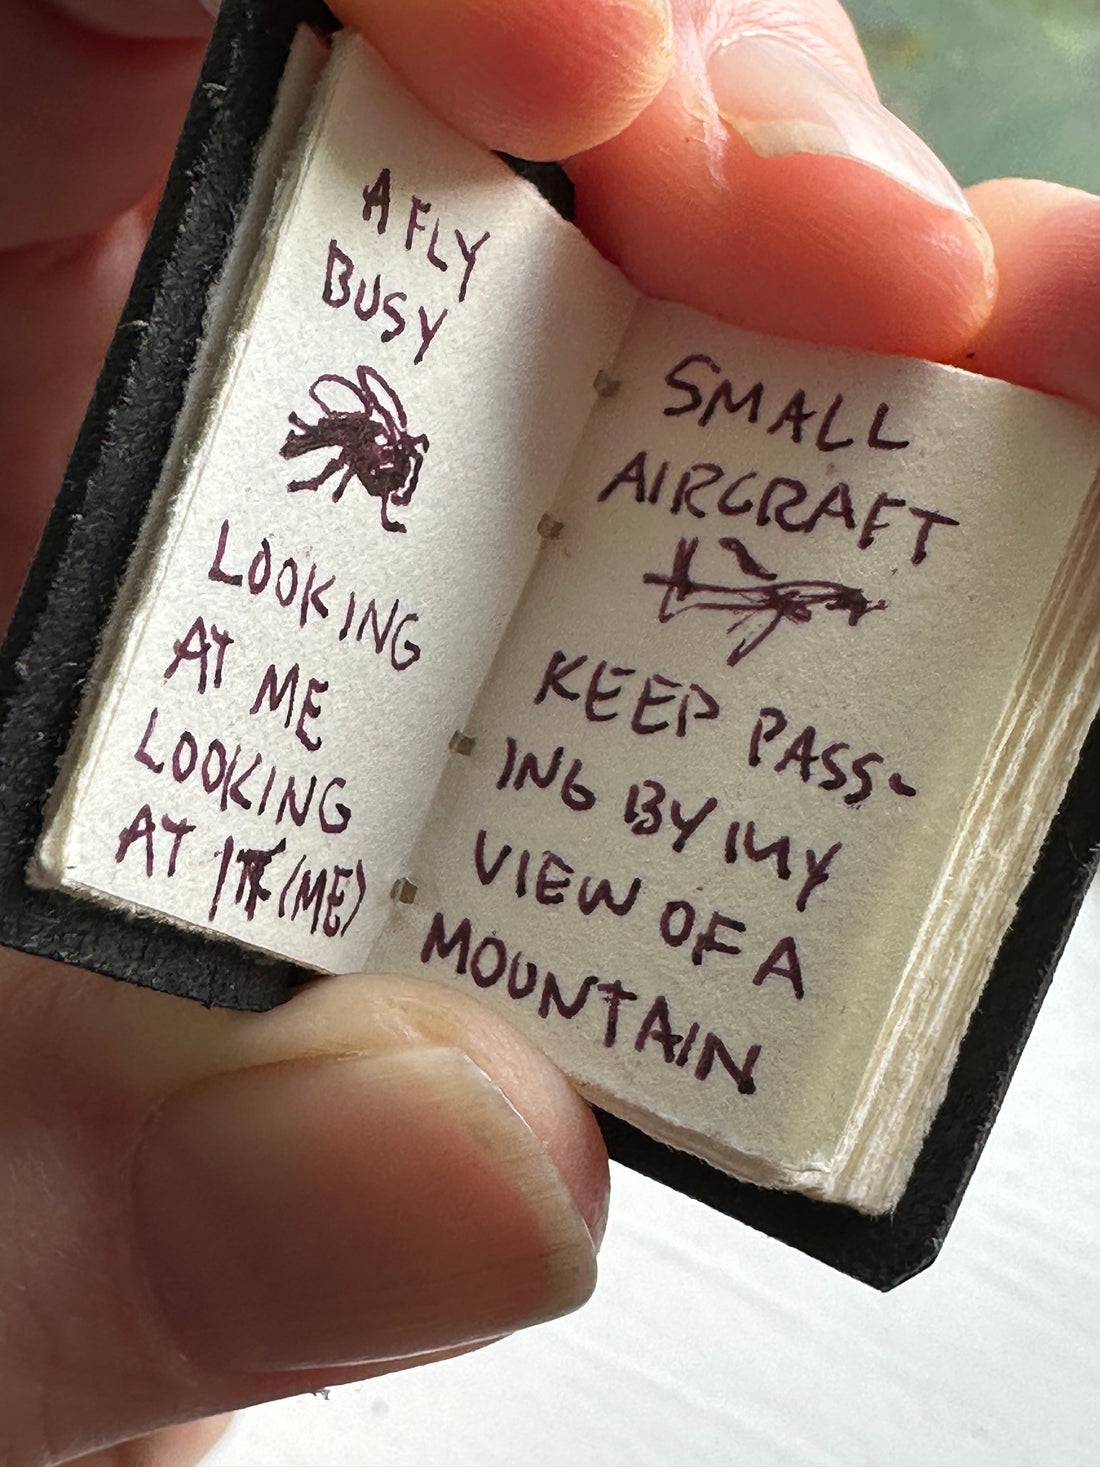 A FLY
BUSY
LOOKING
AT ME
LOOKING
AT IT (ME)
SMALL
AIRCRAFT
KEEP PASS-
ING BY MY
VIEW OF A
MOUNTAIN